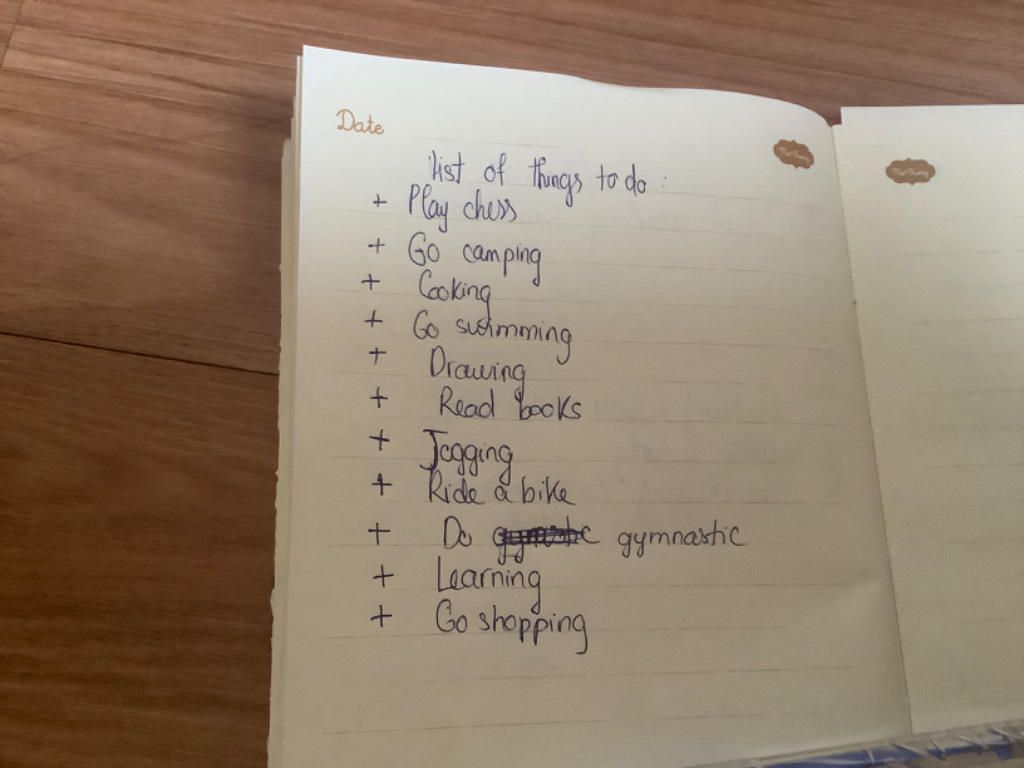 Date
list of things to do :
+ Play chess
+ Go camping
+ Cooking
+ Go swimming
+ Drawing
+ Read books
+ Jogging
+ Ride a bike
+ Do gymnastic
+ Learning
+ Go shopping